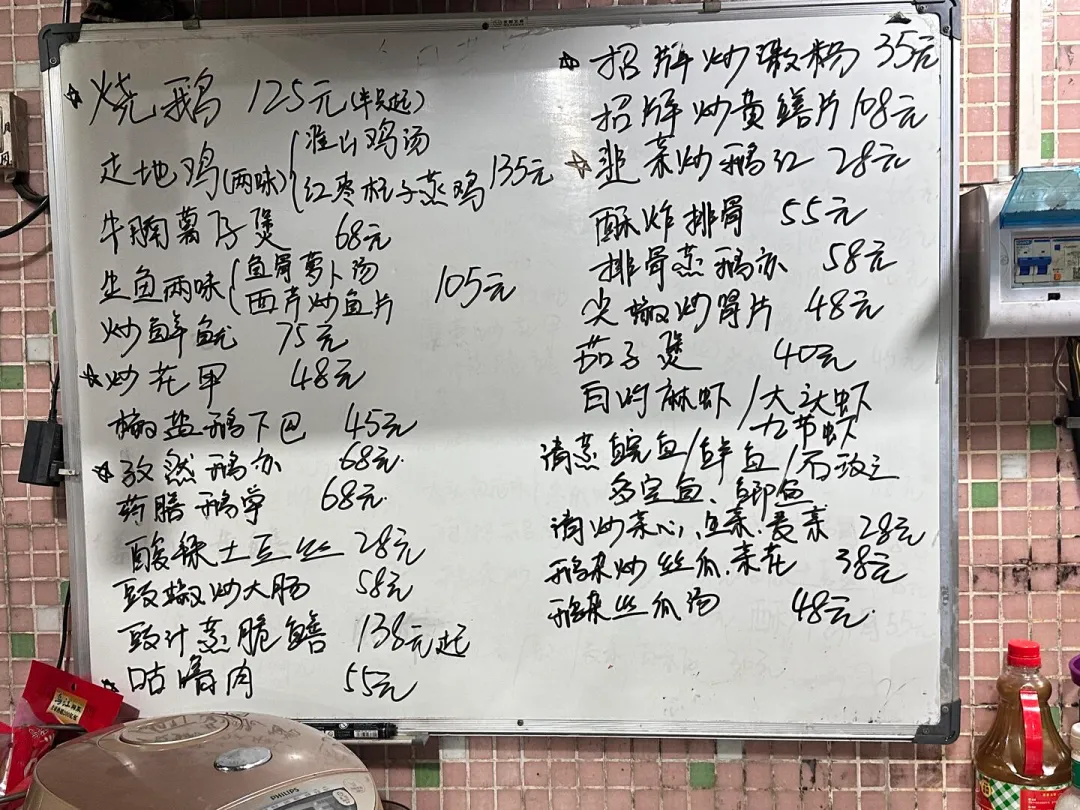 ☆ 烧鹅 125元(半只起)
走地鸡(两味) 淮山鸡汤
红枣杞子蒸鸡 135元
牛腩薯仔煲 68元
生鱼两味 鱼骨萝卜汤
西芹炒鱼片 105元
炒鲜鱿 75元
☆ 炒花甲 48元
椒盐鹅下巴 45元
☆ 孜然鹅亦 68元
药膳鹅掌 68元
酸辣土豆丝 28元
豉椒炒大肠 58元
豉汁蒸脆鳝 138元起
☆ 咕噜肉 55元
☆ 招牌炒濑粉 35元
招牌炒黄鳝片 108元
☆ 韭菜炒鹅红 28元
酥炸排骨 55元
排骨蒸鹅亦 58元
尖椒炒肾片 48元
茄子煲 40元
白灼麻虾/大头虾
九节虾
清蒸鲩鱼/鲜鱼/石
多宝鱼、鲫鱼
清炒菜心、豆菜、麦菜 28元
鹅杂炒丝瓜、菜花 38元
鹅杂丝瓜汤 48元
PHILIPS